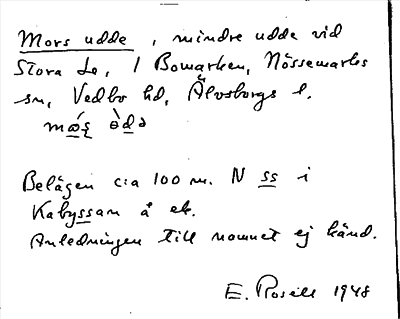 Mors udde, mindre udde vid
Stora Le, i Bomarken, Nössemarks
sn, Vedbo hd, Älvsborgs l.
Belägen c:a 100 m. N ss i
Kabyssan å ek.
Anledningen till namnet ej känd.
E. Rosell 1948